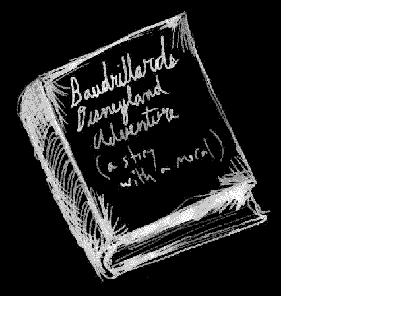 Baudrillards
Disneyland
Adventure
(a story
with a moral)